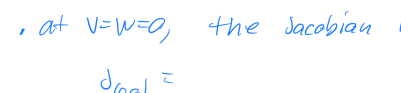 . at v=w=0, the Jacobian
J =